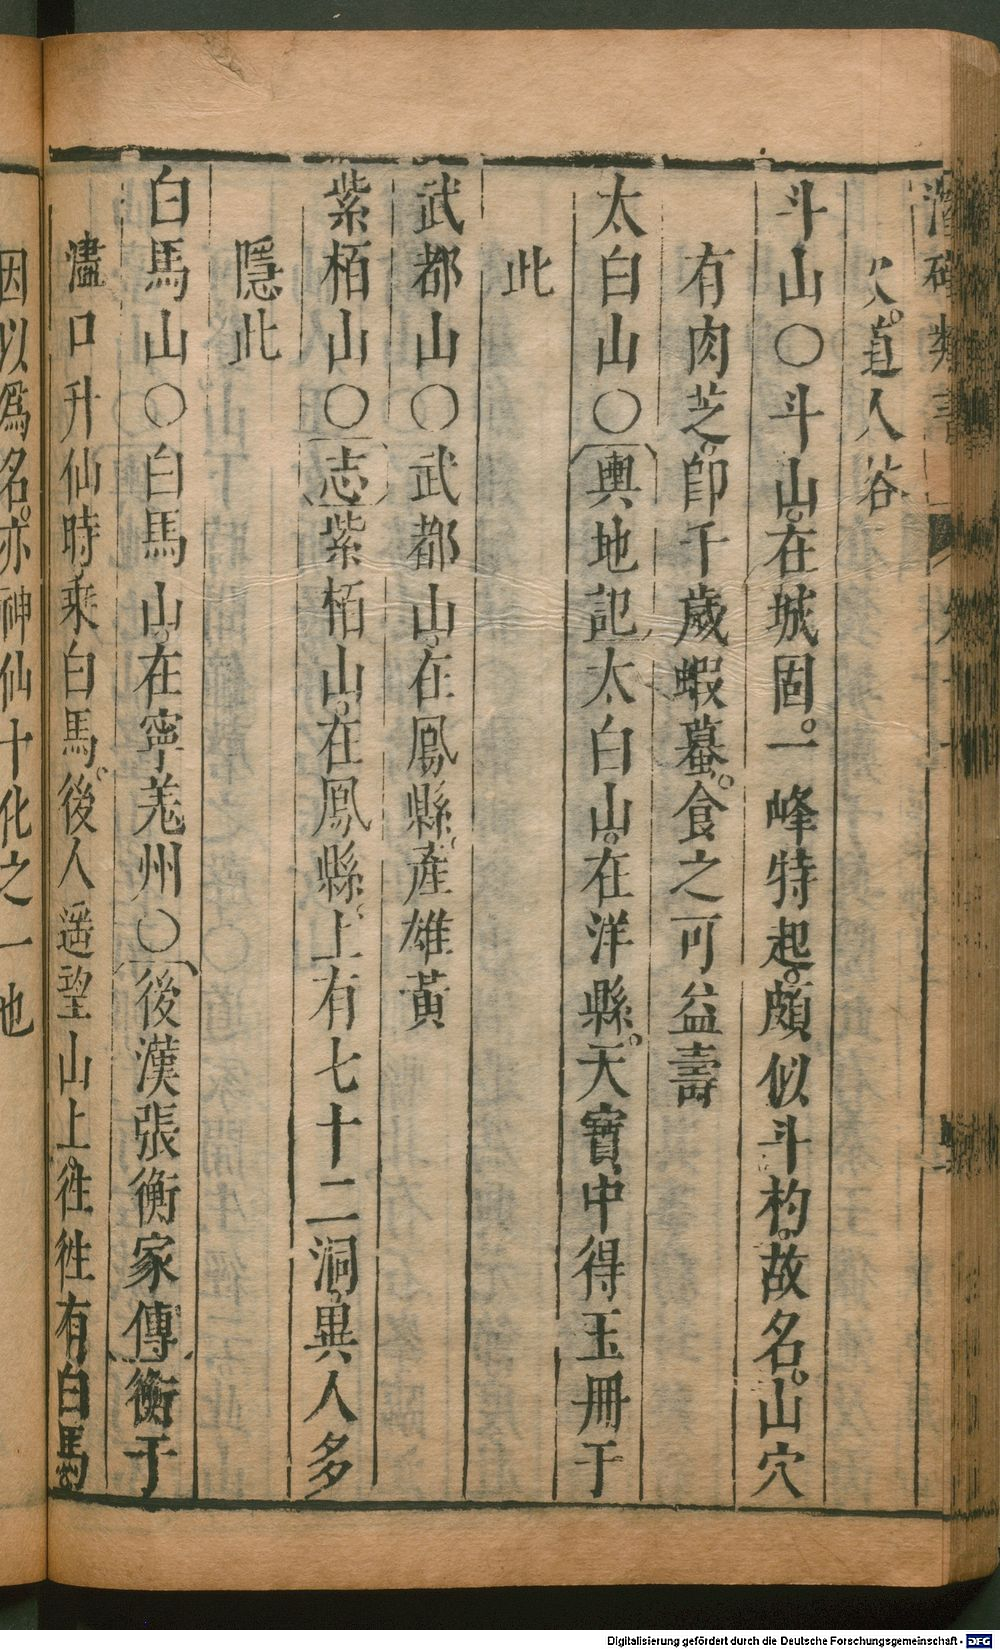 道人谷
斗山〇斗山在城固。一峰特起。頗似斗杓。故名。山穴
有肉芝。卽千歲蝦蟇。食之可益壽
太白山〇輿地記太白山。在洋縣。天寶中得玉冊于
此
武都山〇武都山。在鳳縣。產雄黃
紫栢山〇志紫栢山。在鳳縣。上有七十二洞。異人多
隱此
白馬山〇白馬山。在寧羌州〇後漢張衡家傳衡于
瀘口升仙時乘白馬。後人遥望山上。徃徃有白馬。
因以爲名。亦神仙十化之一也
Digitalisierung gefördert durch die Deutsche Forschungsgemeinschaft - DFG